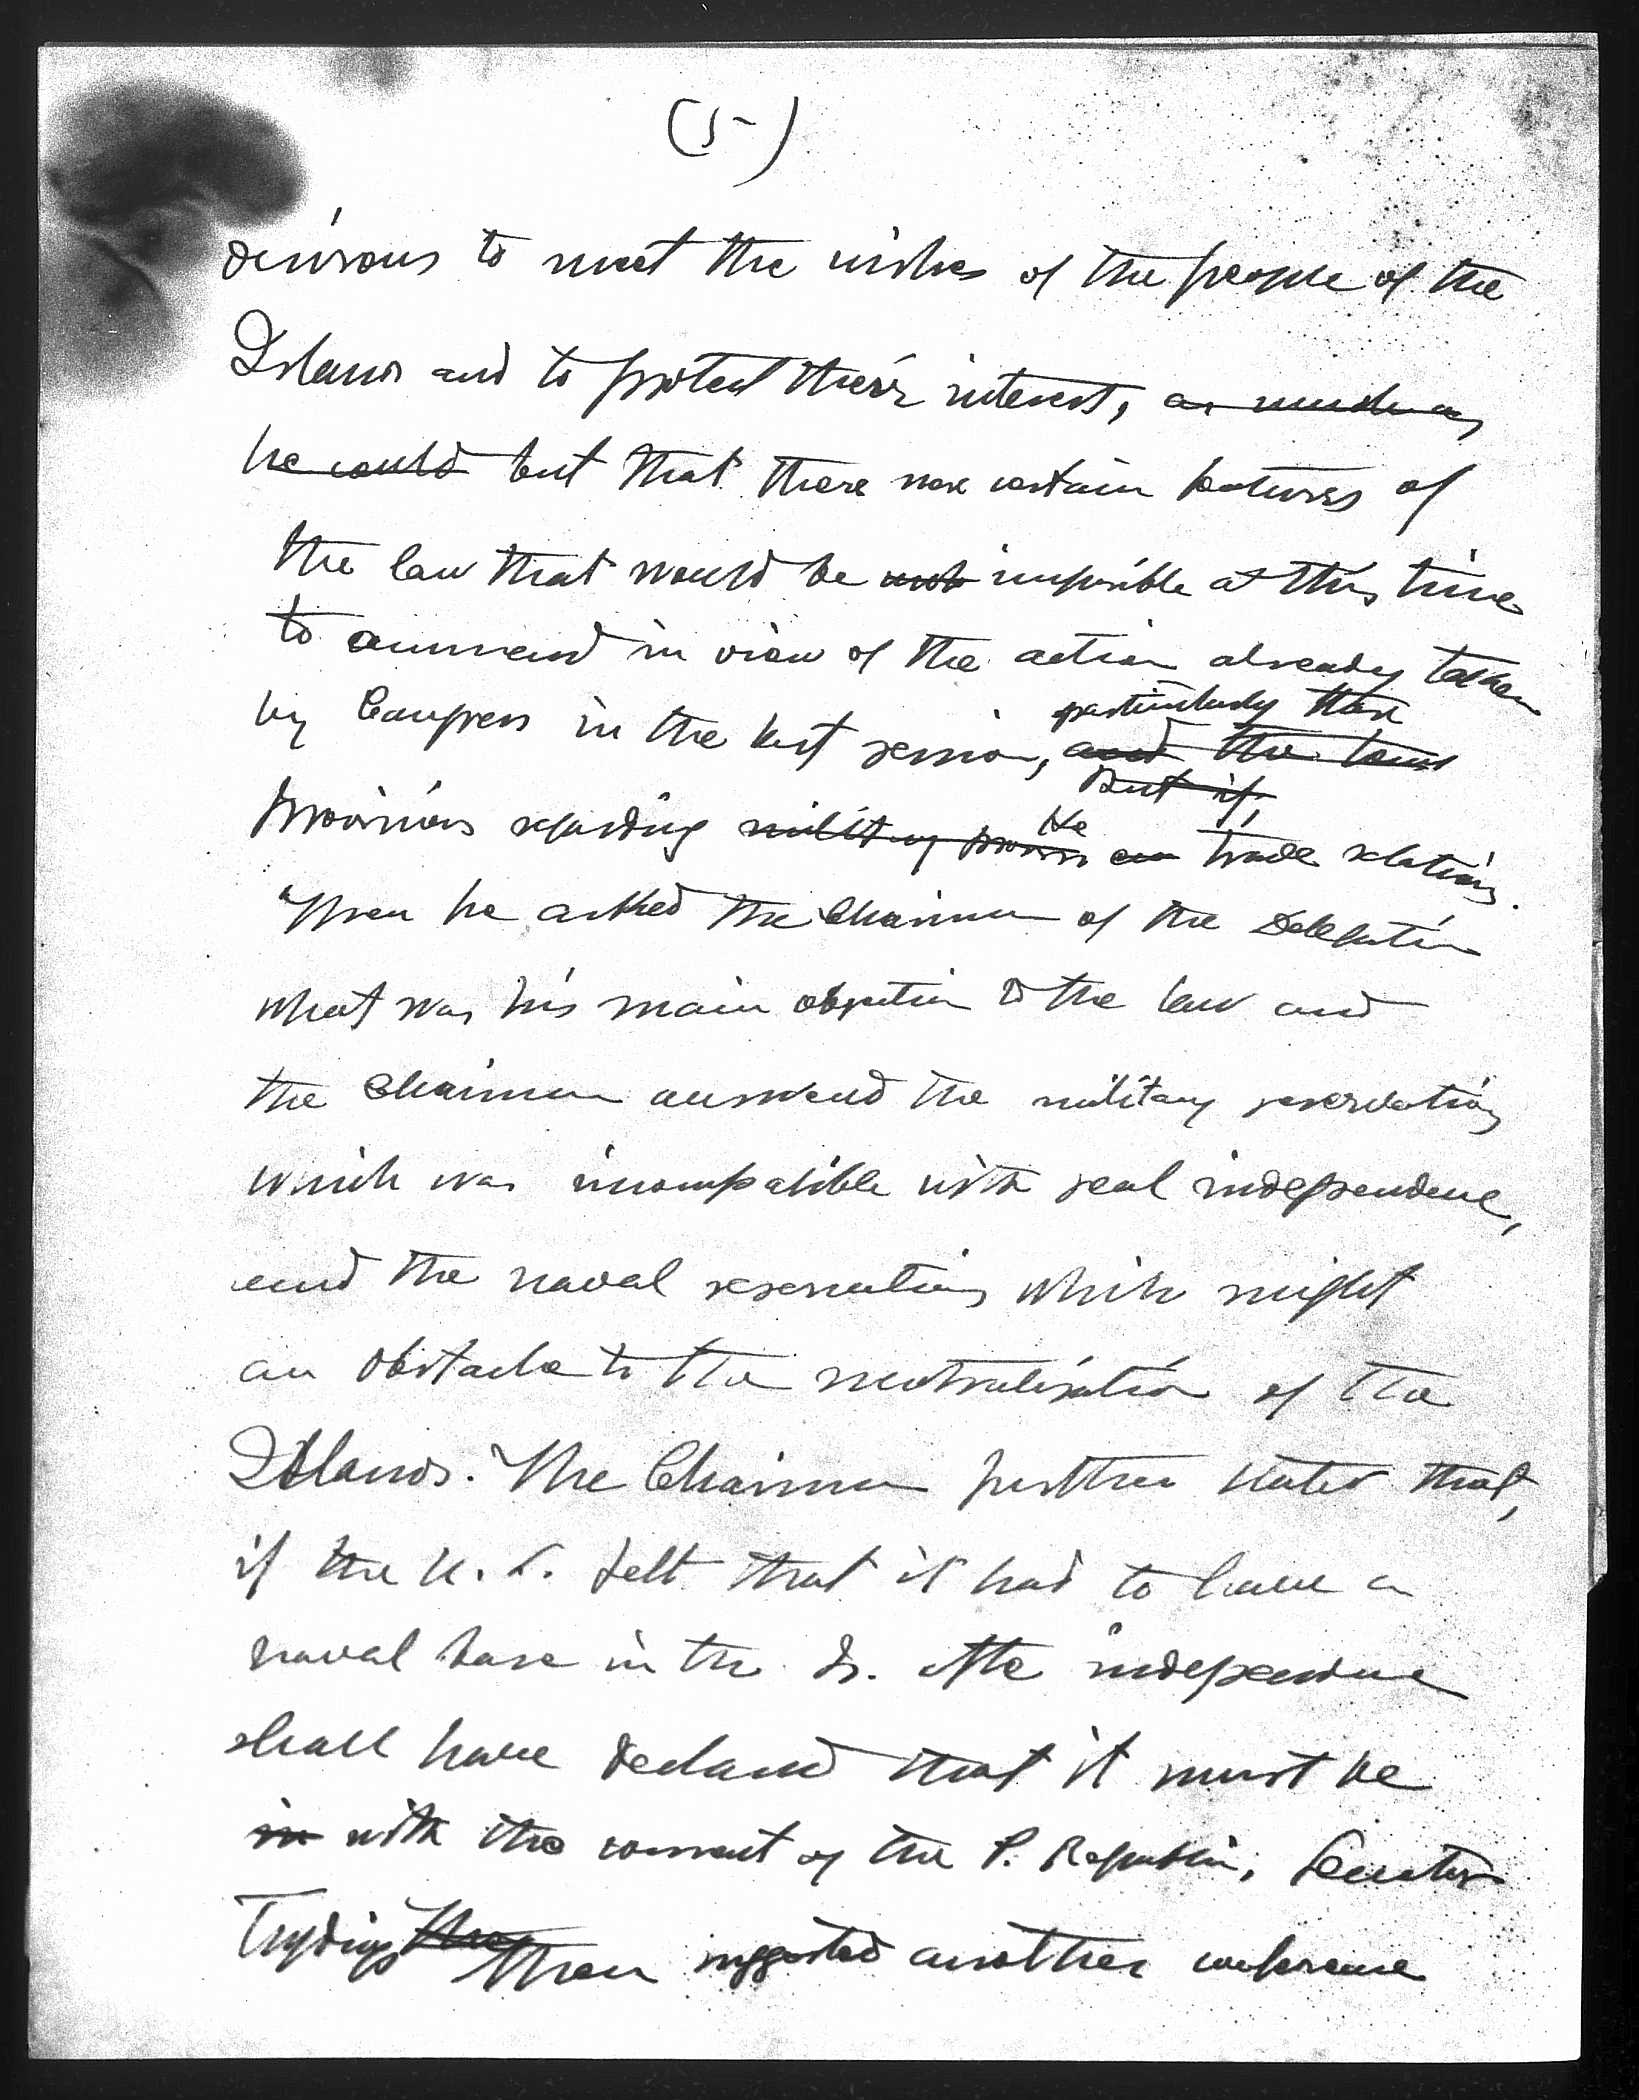 (5)
desirous to meet the wishes of the people of the
Islands and to protect their interests, as much as
he could but that there were certain features of
the law that would be impossible at this time
to ammend in view of the action already taken
by Congress in the last session, particularly those
and the
But if,
provisions regarding military provisi the trade relations.
Then he asked the Chairman of the Delegation
what was his main objection to the law and
the Chairman answered the military reservations
which was incompatible with real independence,
and the naval reservations which might
an obstacle to the neutralization of the
Islands. The Chairman further stated that,
if the U.S. felt that it had to have a
naval base in the Is. after independence
shall have declared that it must be
in with the consent of the P. Republic, Senator
Tydings then then suggested another conference